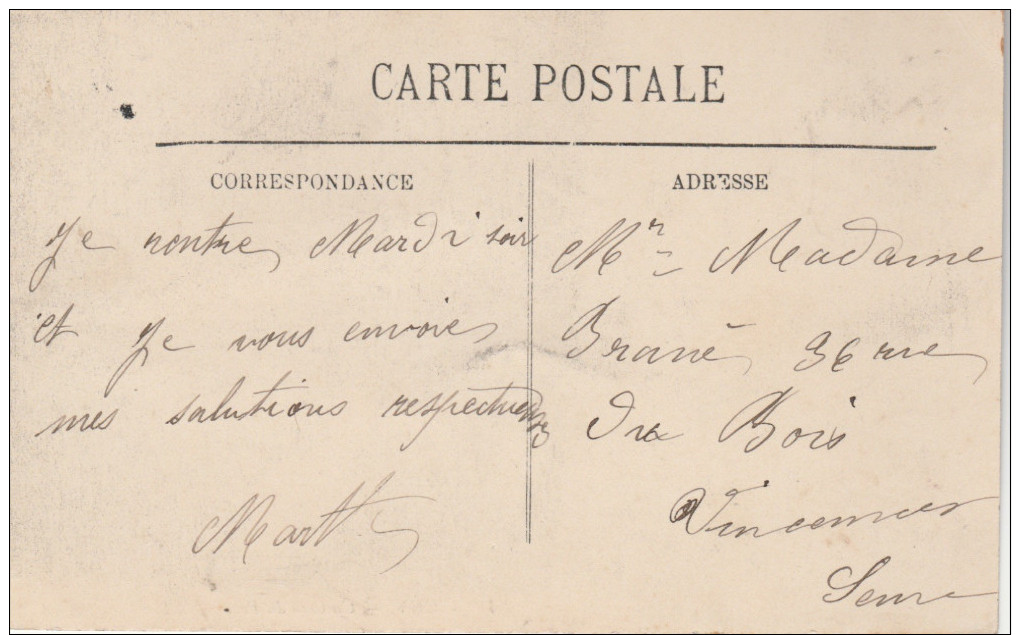 CARTE POSTALE
CORRESPONDANCE
Je rentre Mardi soir
et Je vous envoie
mes salutions respectueuses
Marthe
ADRESSE
Mr Madame
36 rue
du Bois
Vincennes
Seine